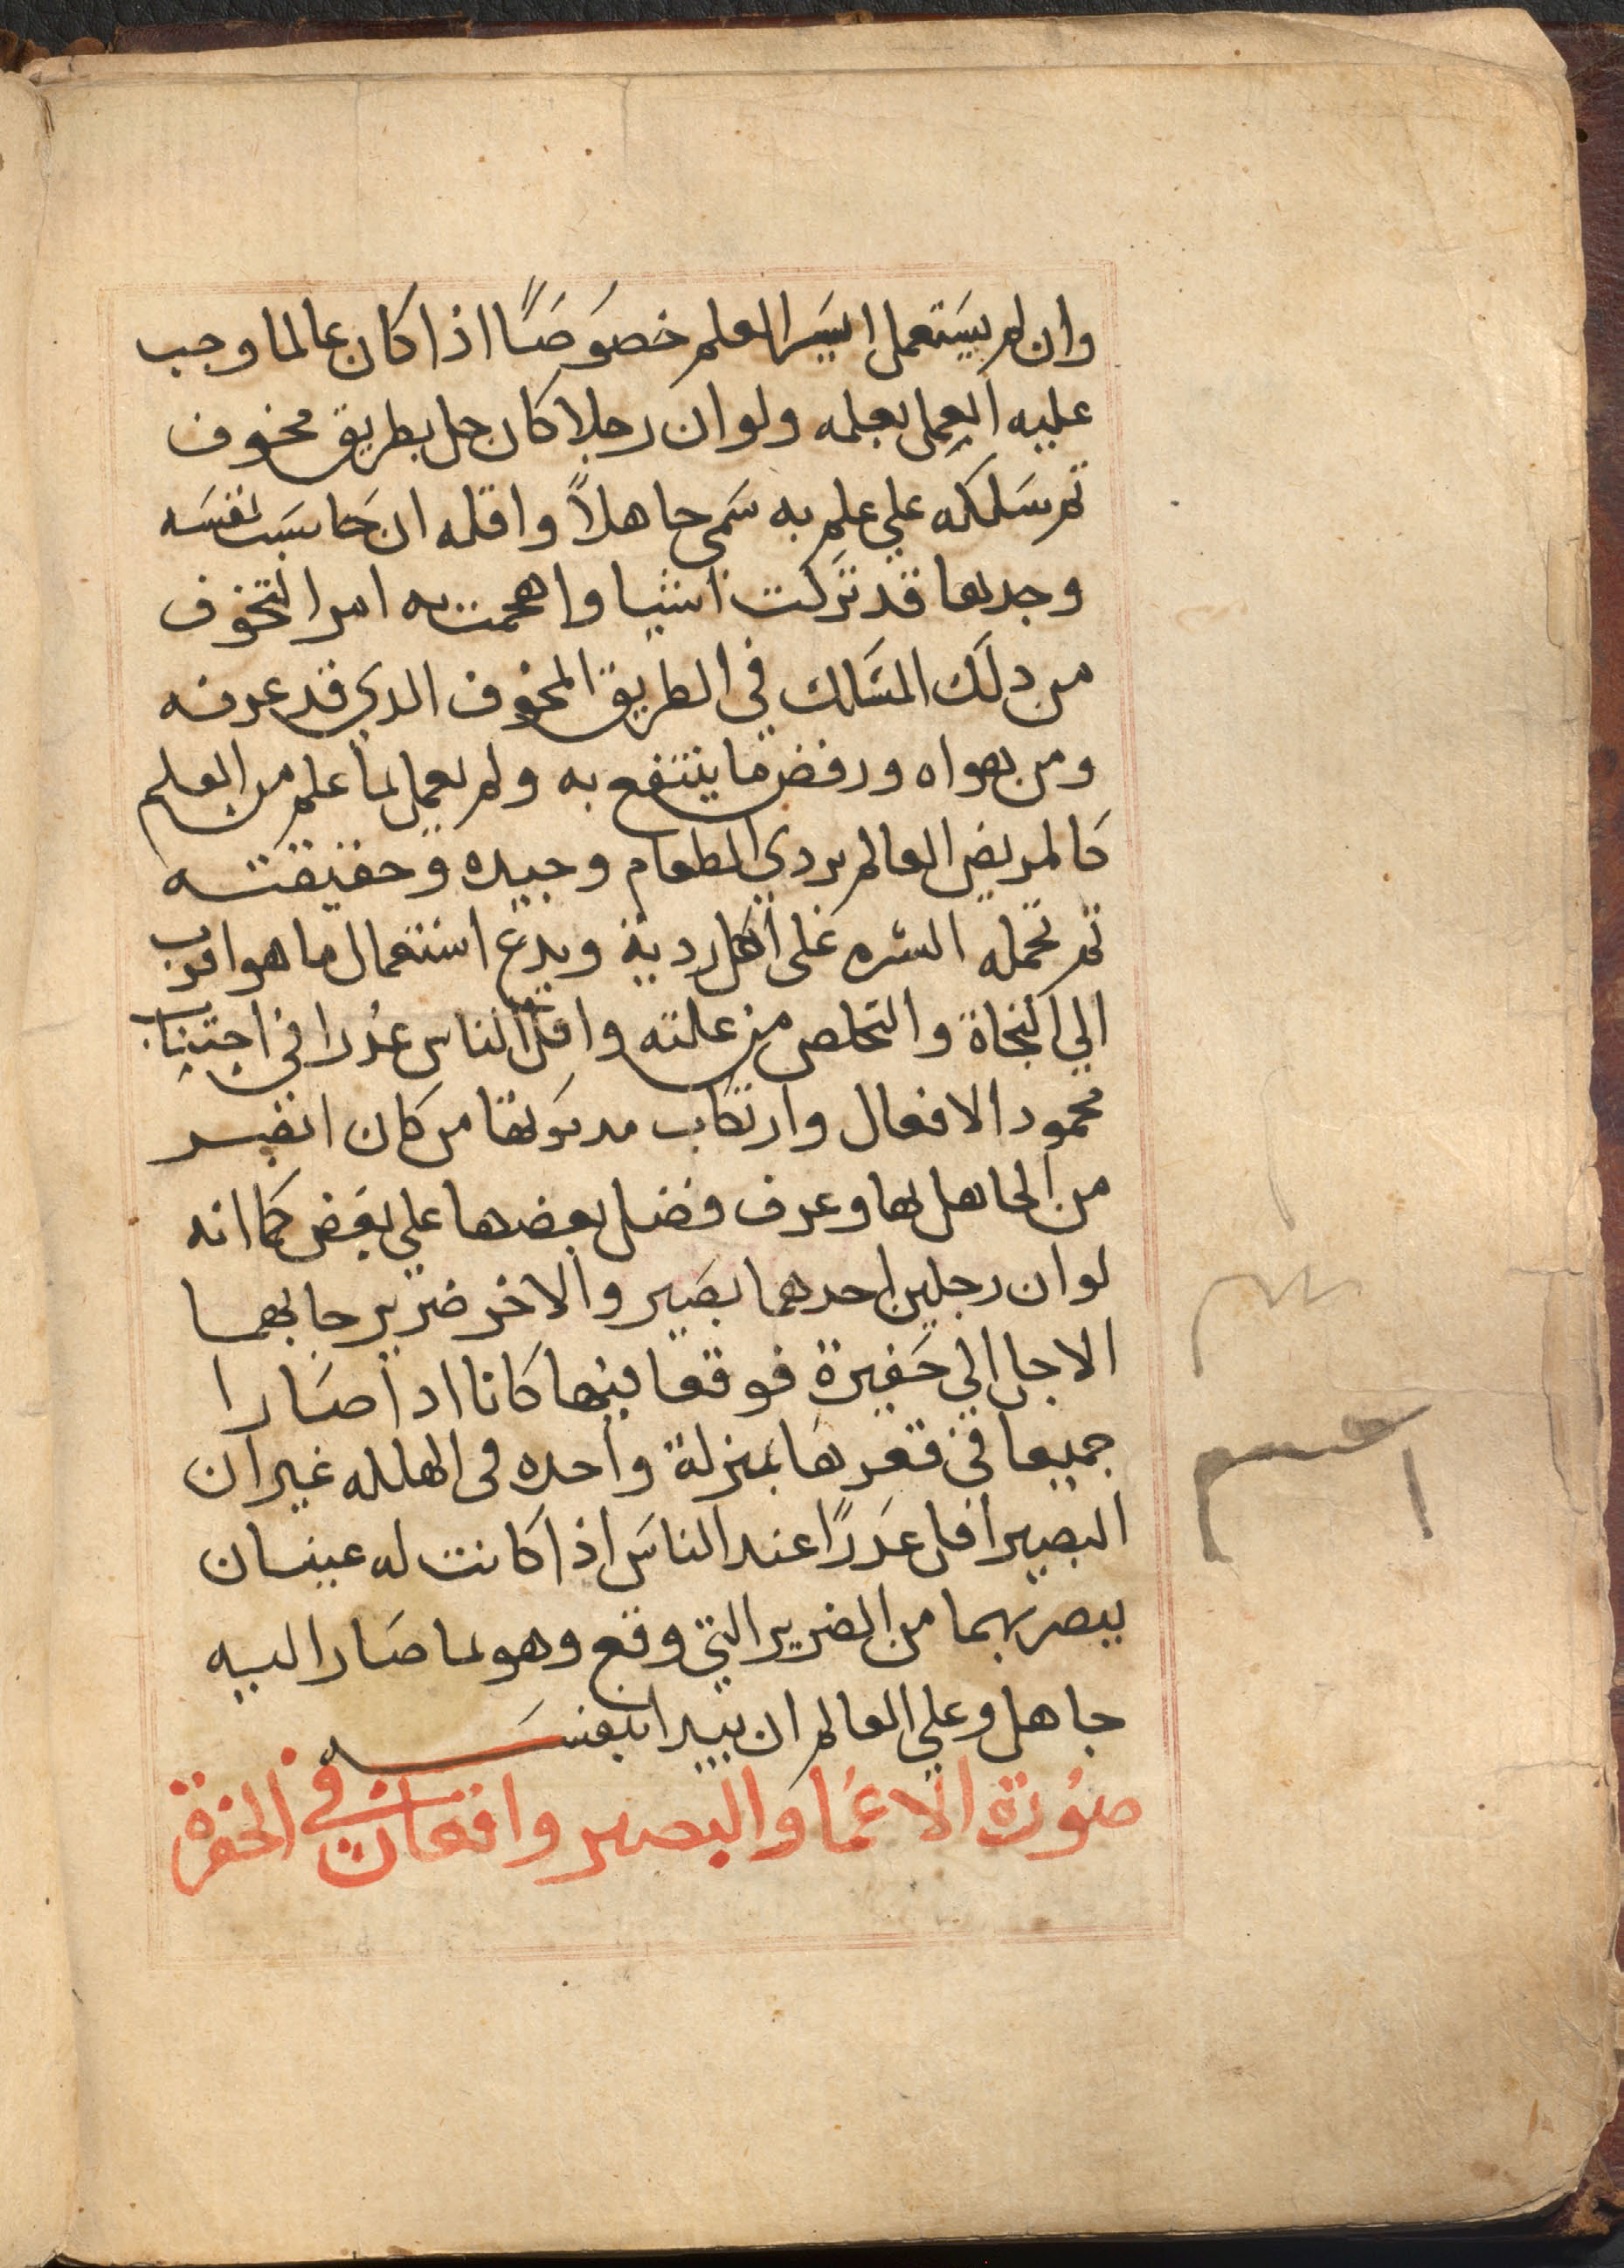 وان لم يستعمل ايسر العلم خصوصًا اذا كان عالما وجب
عليه العمل بعلمه ولو ان رجلا كان جل بطريق مخوف
ثم سلكه علي علم به سمي جاهلاً واقله ان حاسبت نفسه
وجدها قد تركت اشيا واهمت به امرا لتخوف
من دلك المسالك في الطريق المخوف الدي قد عرفه
ومن بهواه ورفض ما ينتفع به ولم يعمل لما علم من العلم
كالمريض العالم بردي الطعام وجيده وحقيقته
ثم تحمله الشره على اكل ردية ويدع استعمال ما هو اقرب
الي النجاة والتخلص من علته واقل الناس عدرا في اجتناب
محمود الافعال وارتكاب مدموتها من كان ابصر
من الجاهل بها وعرف فضل بعضها علي بعض كما انه
لو ان رجلين احدهما بصير والاخر ضرير جا بهما
الاجل الي حفيرة فوقعا فيها كانا ادا صارا
جميعا في قعرها بمنزلة واحده فى الهلكه غير ان
البصير اقل عدرًا عند الناس اذا كانت له عينان
يبصر بهما من الضرير التي وقع وهو لما صار اليه
جاهل وعلي العالم ان يبدا بنفسه
صورة الاعما والبصير واقعان في الحفرة